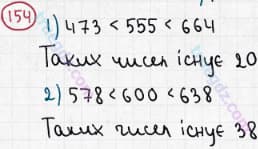 154
1) 473 < 555 < 664
Таких чисел існує 20
2) 578 < 600 < 638
Таких чисел існує 38